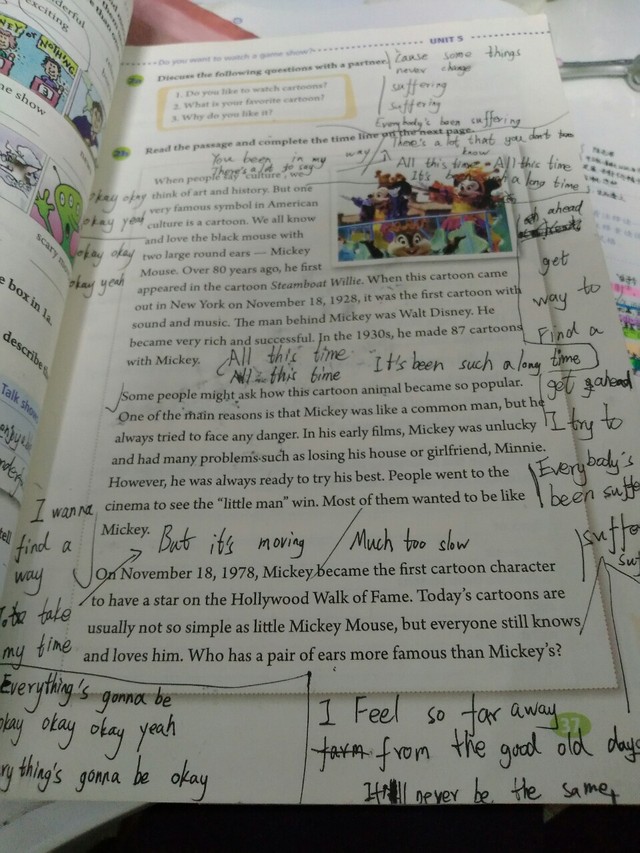 exciting
me show
scary
e box in 1a.
describe
Talk show
tell
UNIT 5
Do you want to watch a game show?
2a Discuss the following questions with a partner.
1. Do you like to watch cartoons?
2. What is your favorite cartoon?
3. Why do you like it?
'Cause some things
never change
suffering
suffering
Everybody's been suffering
2b Read the passage and complete the time line on the next page.
There's a lot that you don't
know
You been in my
way
There's a lot to say
All this time - All this time
a long time
When people say "culture", we
think of art and history. But one
very famous symbol in American
culture is a cartoon. We all know
and love the black mouse with
two large round ears — Mickey
Mouse. Over 80 years ago, he first
appeared in the cartoon Steamboat Willie. When this cartoon came
out in New York on November 18, 1928, it was the first cartoon with
sound and music. The man behind Mickey was Walt Disney. He
became very rich and successful. In the 1930s, he made 87 cartoons
with Mickey.
okay okay
okay yeah
okay okay
okay yeah
ahead
get
way to
Find a
time
get ahead
I try to
Everybody's
been
All this time
All this time
It's been such a long
Some people might ask how this cartoon animal became so popular.
One of the main reasons is that Mickey was like a common man, but he
always tried to face any danger. In his early films, Mickey was unlucky
and had many problems such as losing his house or girlfriend, Minnie.
However, he was always ready to try his best. People went to the
cinema to see the "little man" win. Most of them wanted to be like
Mickey.
But it's moving
Much too slow
I wanna
find a
way
To take
my time
On November 18, 1978, Mickey became the first cartoon character
to have a star on the Hollywood Walk of Fame. Today's cartoons are
usually not so simple as little Mickey Mouse, but everyone still knows
and loves him. Who has a pair of ears more famous than Mickey's?
Everything's gonna be
okay okay okay yeah
rything's gonna be okay
I Feel so far away
from the good old days
It'll never be the same
37